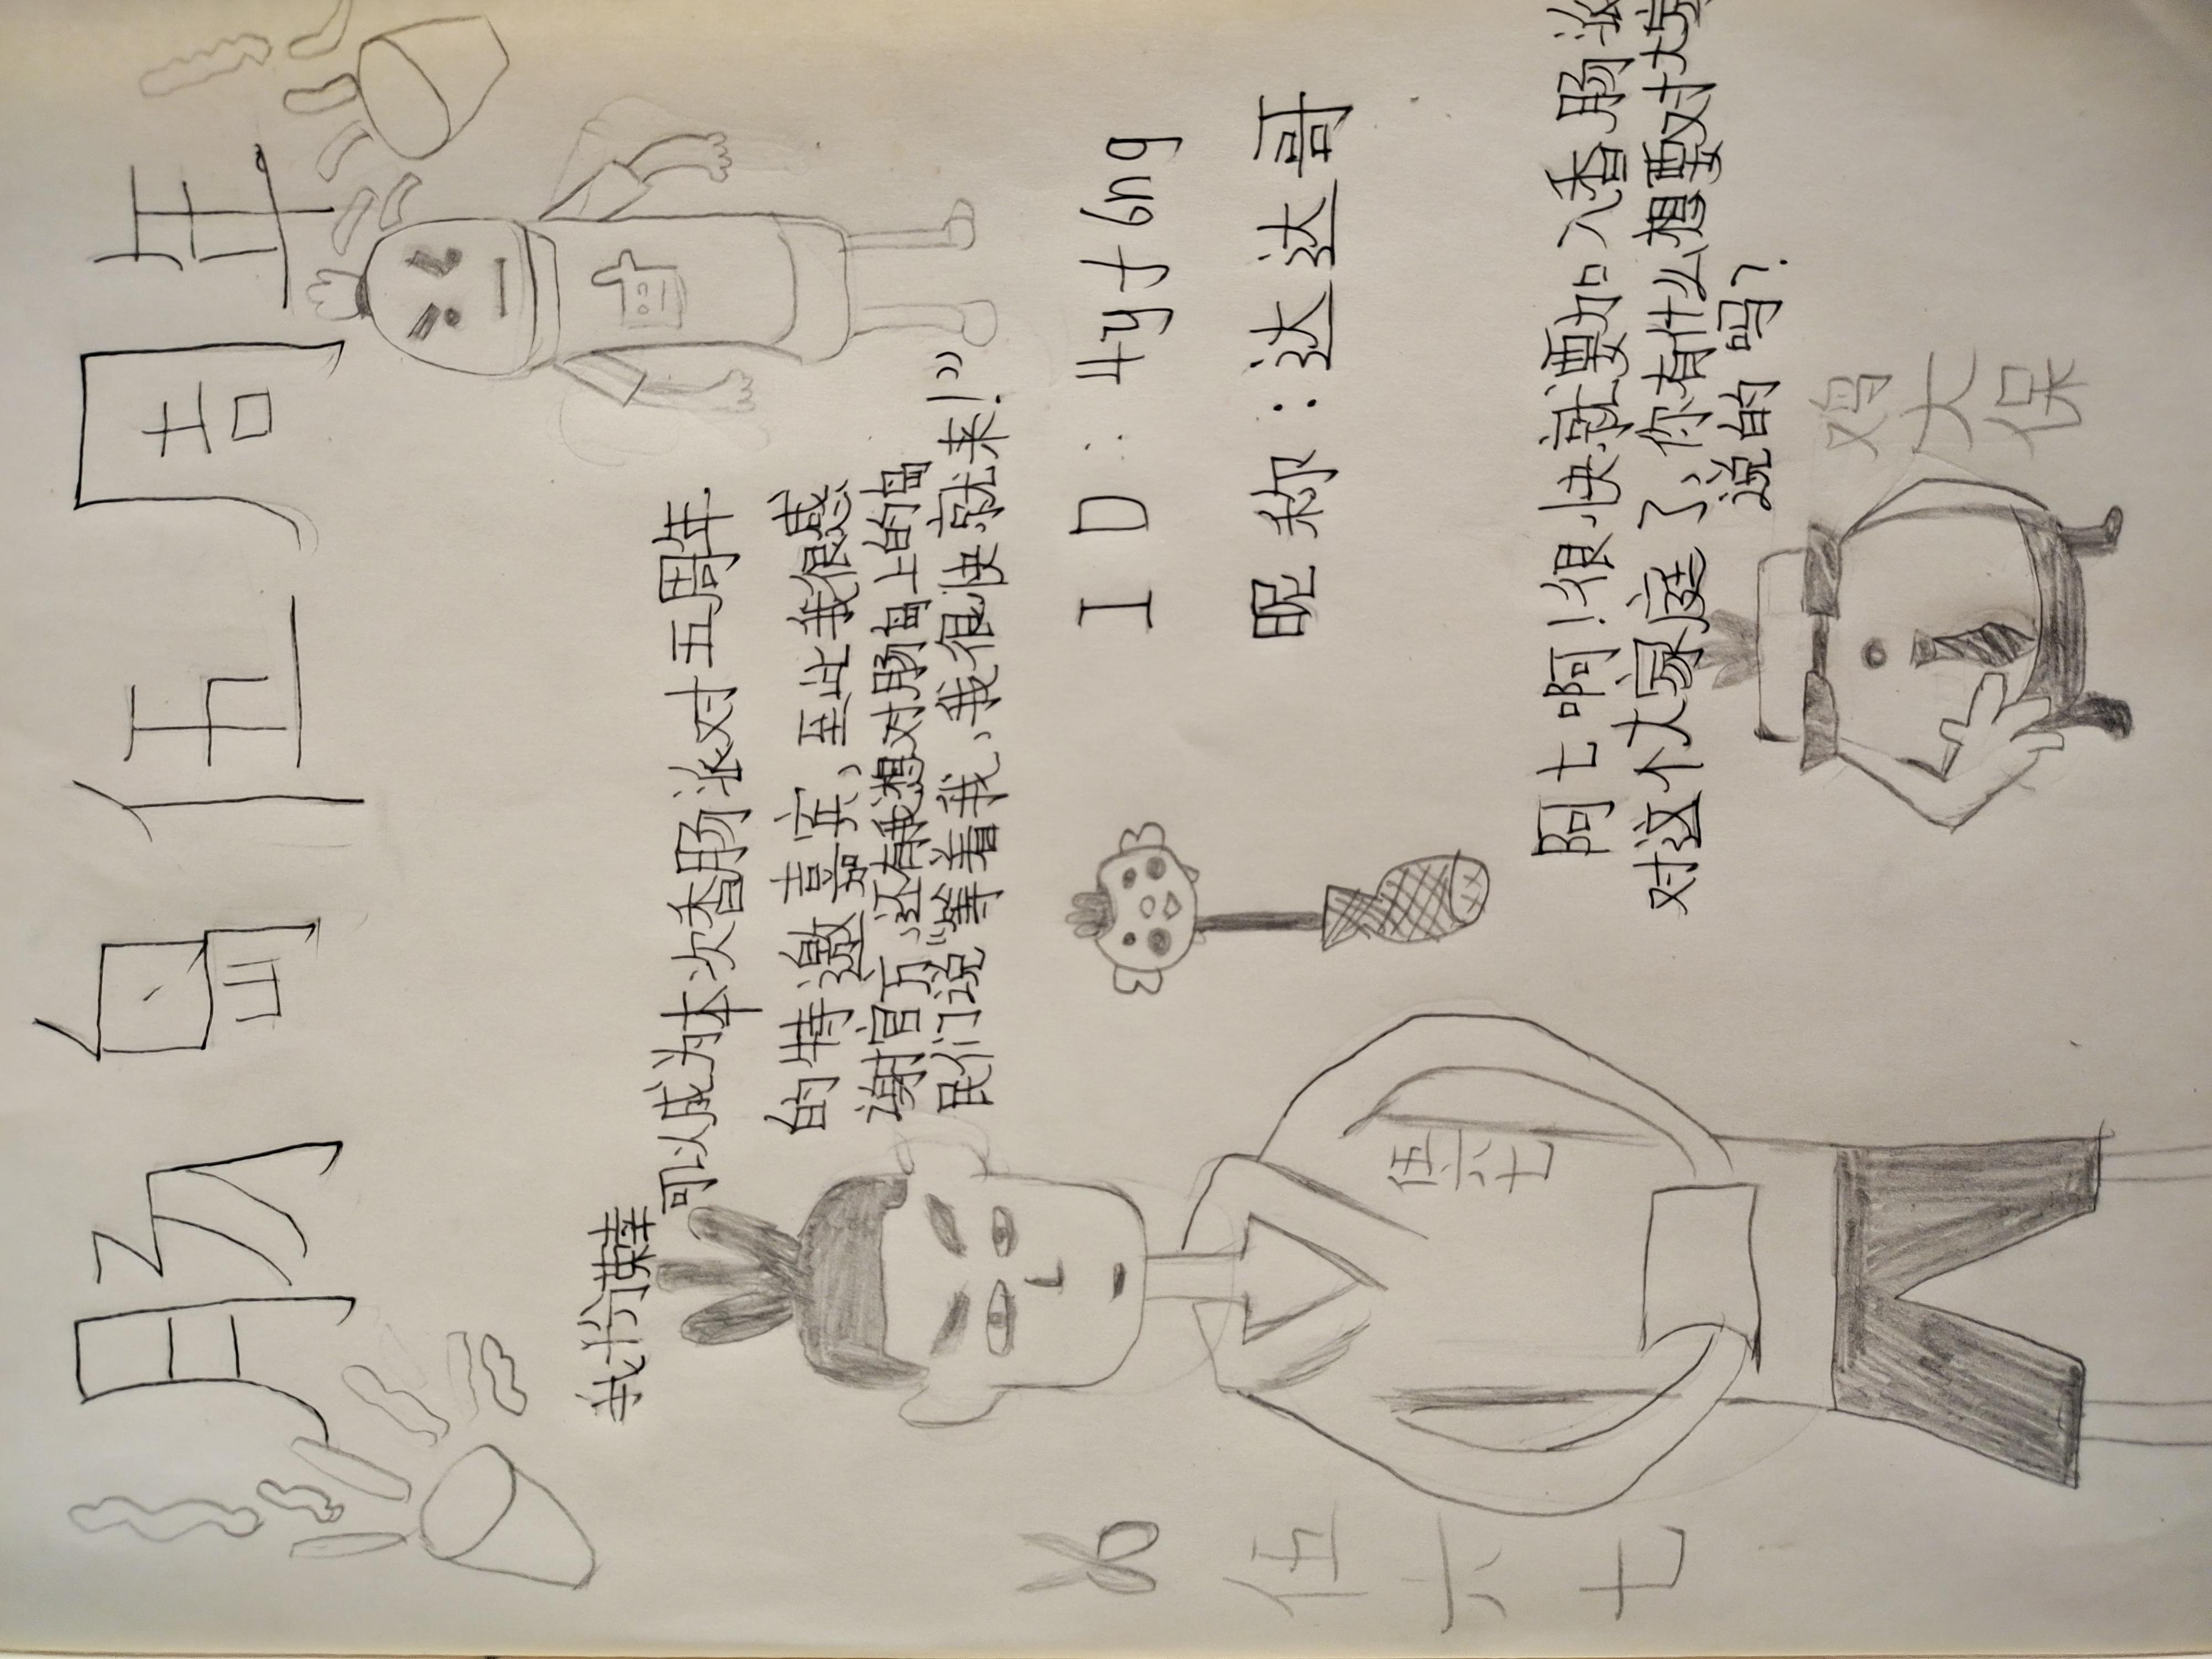 肠岛伍周年
我
可以成为本次香肠派对五周年
的特邀嘉宾，至此我很感
谢官方，还有我想对肠岛上的岛
民们说“等着我，我很快就来！”
ID：4yf6ng
昵称：达达哥
阿七啊！很快就要加入香肠派
对这个大家庭了，你有什么想要对大家
说的吗？
鸡大保
伍六七
伍六七